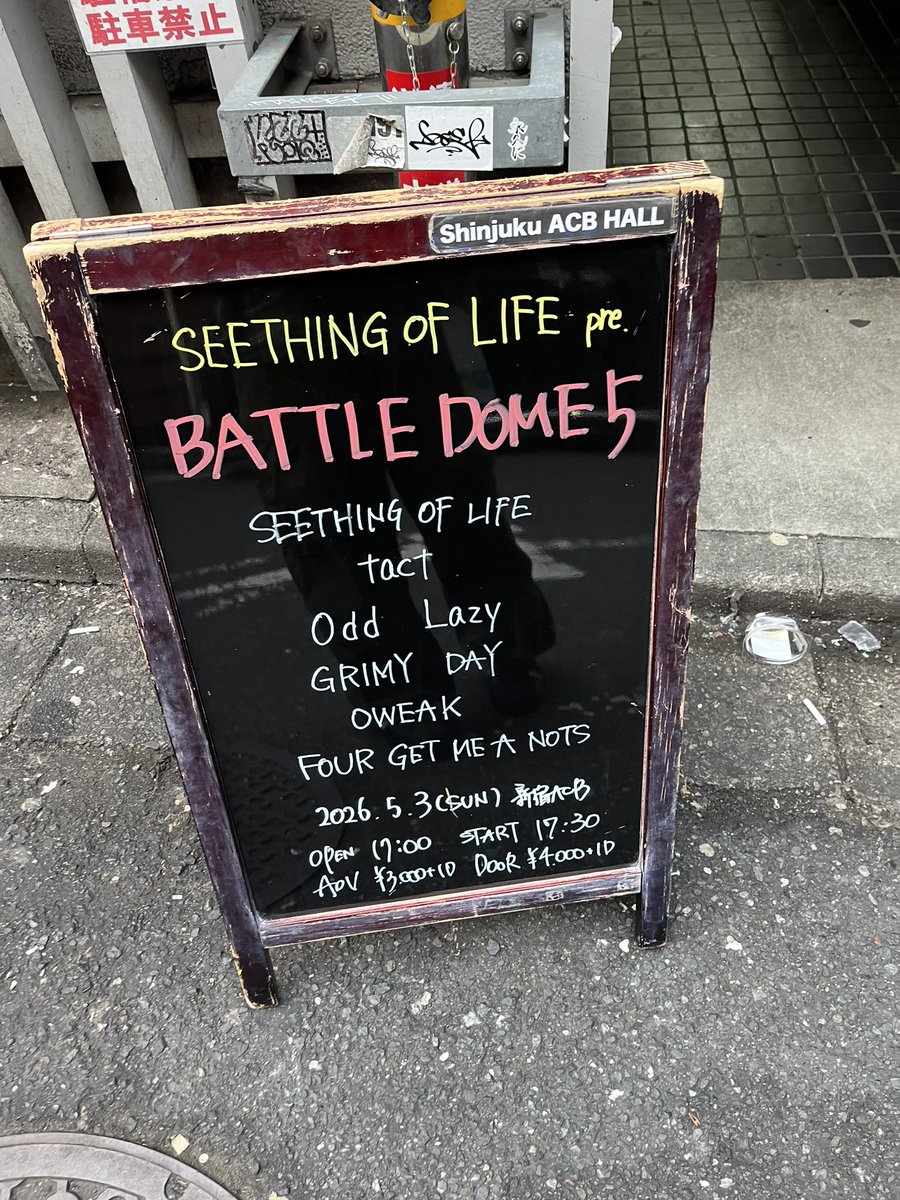 駐車禁止
Shinjuku ACB HALL
SEETHING OF LIFE pre.
BATTLE DOME 5
SEETHING OF LIFE
tact
Odd Lazy
GRIMY DAY
OWEAK
FOUR GET ME A NOTS
2026.5.3(SUN) 新宿ACB
OPEN 17:00 START 17:30
ADV ¥3,000+1D DOOR ¥4.000+1D